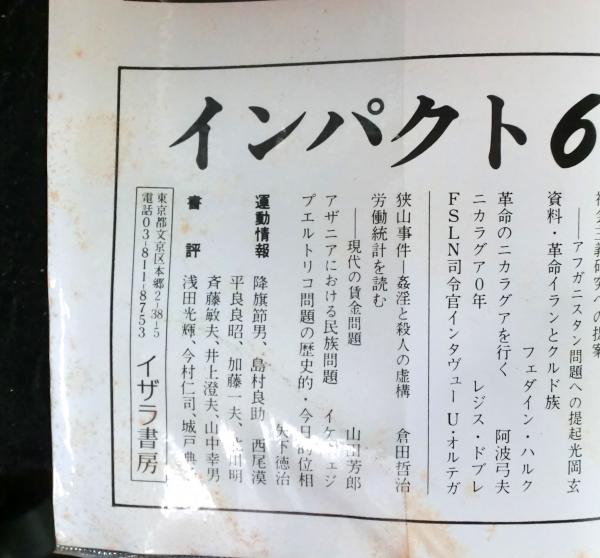 インパクト6
――アフガニスタン問題への提起 光岡玄
資料・革命イランとクルド族
フェダイン・ハルク
革命のニカラグアを行く 阿波弓夫
ニカラグア0年 レジス・ドブレ
FSLN司令官インタヴュー U・オルテガ
狭山事件―姦淫と殺人の虚構 倉田哲治
労働統計を読む
――現代の賃金問題 山田芳郎
アザニアにおける民族問題
プエルトリコ問題の歴史的・今日的位相
矢下徳治
運動情報 降旗節男、島村良助 西尾漠
平良良昭、加藤一夫、
書評 斉藤敏夫、井上澄夫、山中幸男
浅田光輝、今村仁司、城戸
東京都文京区本郷2-38-5
電話03-811-8753
イザラ書房